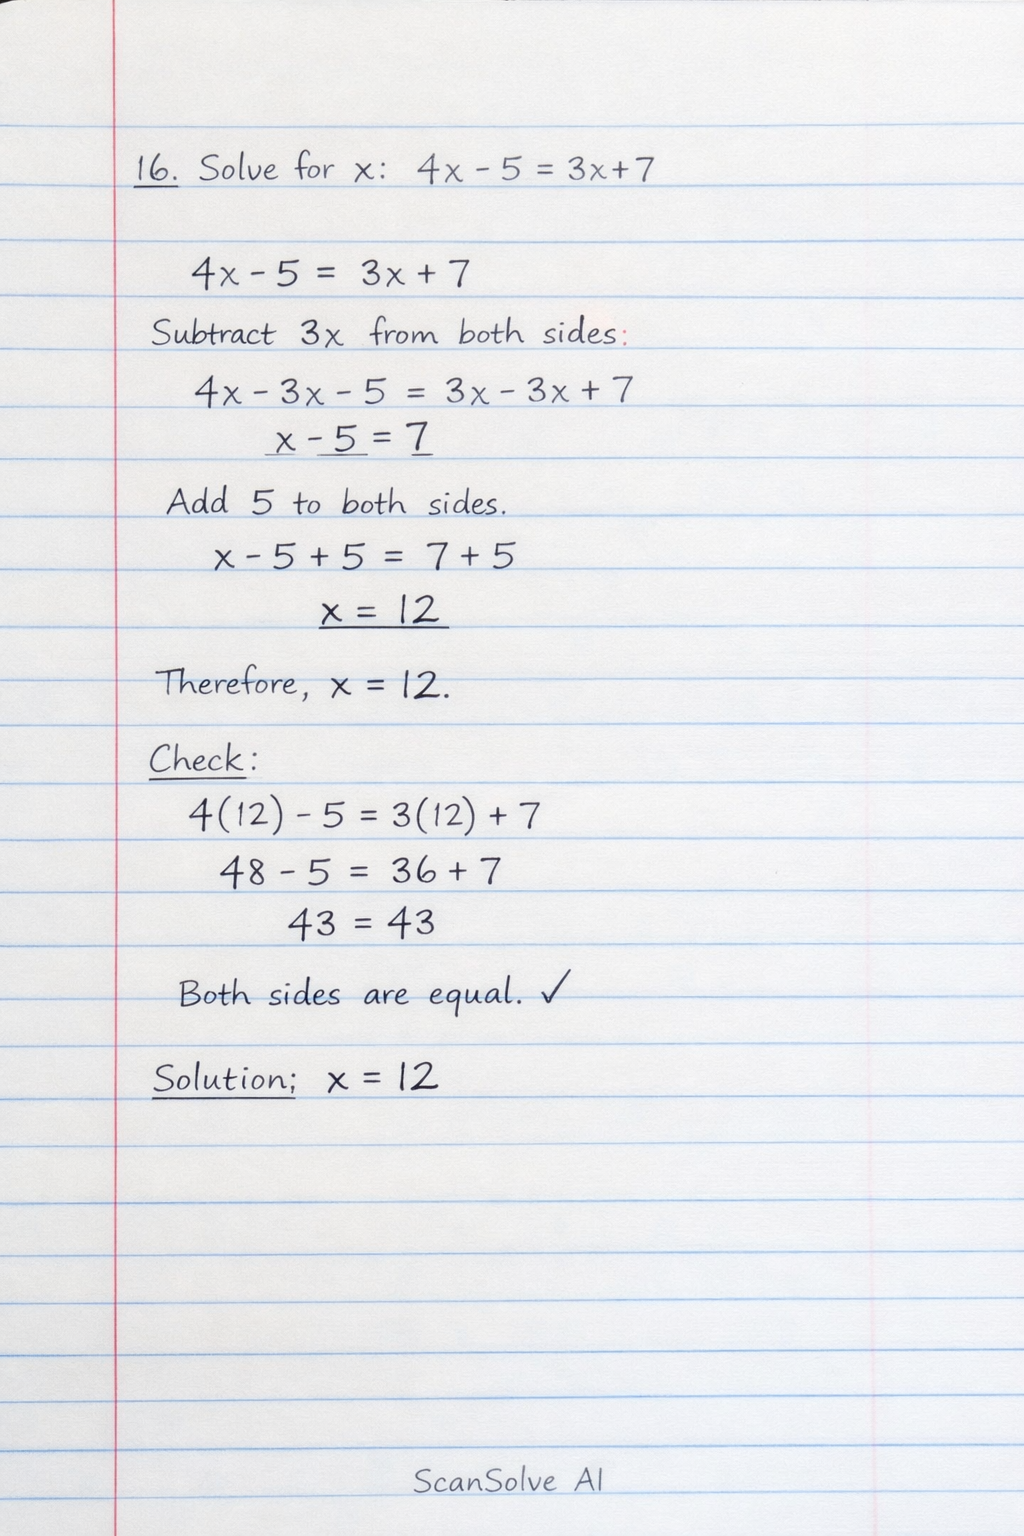 16. Solve for x: 4x - 5 = 3x+7
4x - 5 = 3x + 7
Subtract 3x from both sides:
4x - 3x - 5 = 3x - 3x + 7
x - 5 = 7
Add 5 to both sides.
x - 5 + 5 = 7 + 5
x = 12
Therefore, x = 12.
Check:
4(12) - 5 = 3(12) + 7
48 - 5 = 36 + 7
43 = 43
Both sides are equal. ✓
Solution; x = 12
ScanSolve AI